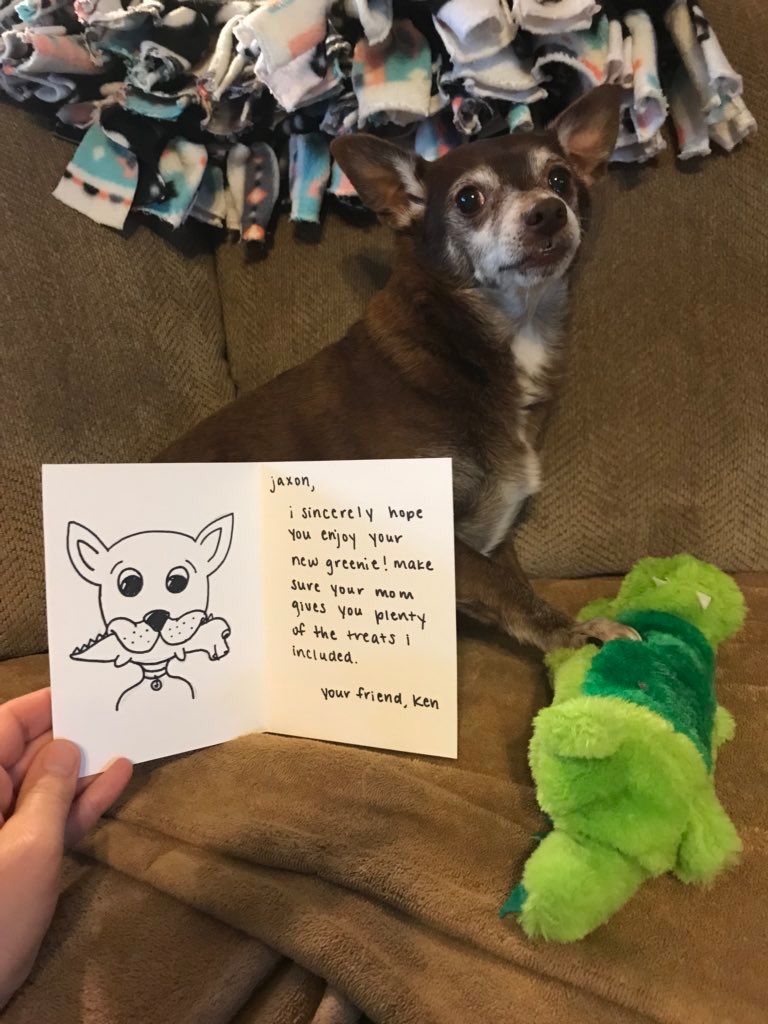 jaxon,
i sincerely hope
you enjoy your
new greenie! make
sure your mom
gives you plenty
of the treats i
included.
your friend, Ken